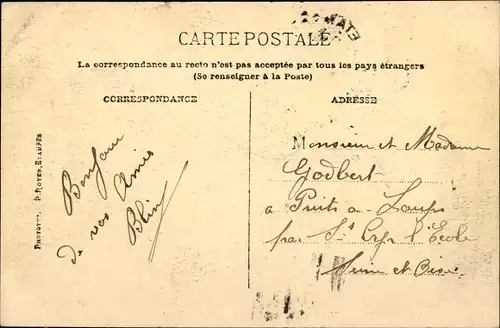 CARTE POSTALE
La correspondance au recto n'est pas acceptée par tous les pays étrangers
(Se renseigner à la Poste)
CORRESPONDANCE
ADRESSE
PHOTOTYP. P. ROYER, ETAMPES
Bonjour
de vos Amis
Blin
Monsieur et Madame
Godbert
a Puits a Loups
par St Cyr l'Ecole
Seine et Oise